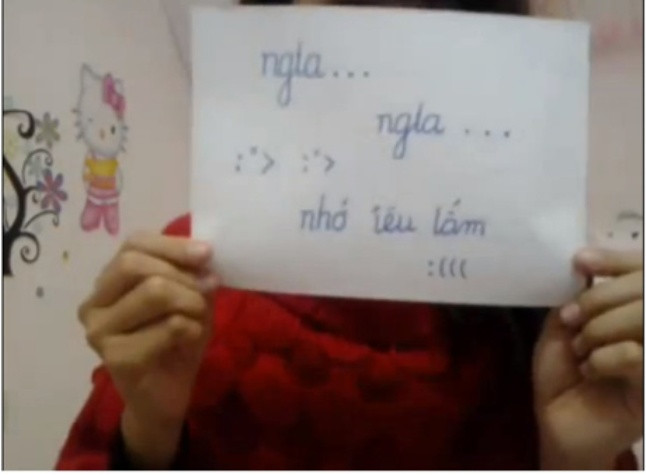 ngla...
ngla ...
:"> :">
nhớ iêu lắm
:(((